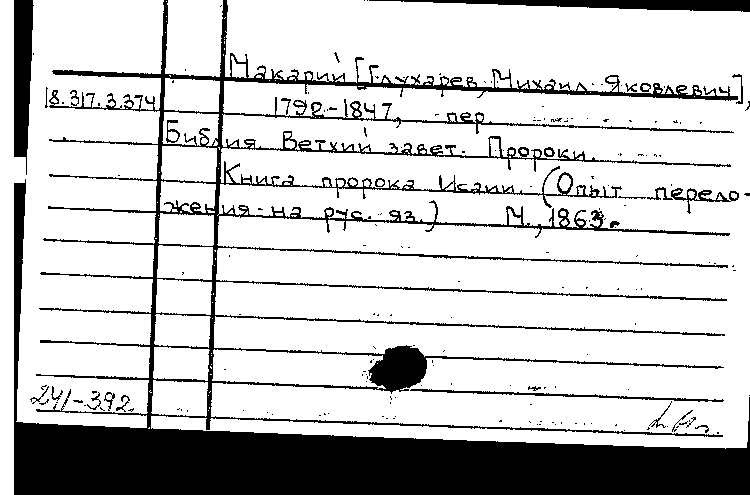 Макарий [Глухарев, Михаил Яковлевич],
18.317.3.374
1792-1847, пер.
Библия. Ветхий завет. Пророки.
Книга пророка Исаии. (Опыт перело-
жения на рус. яз.) М., 1863.
241-392